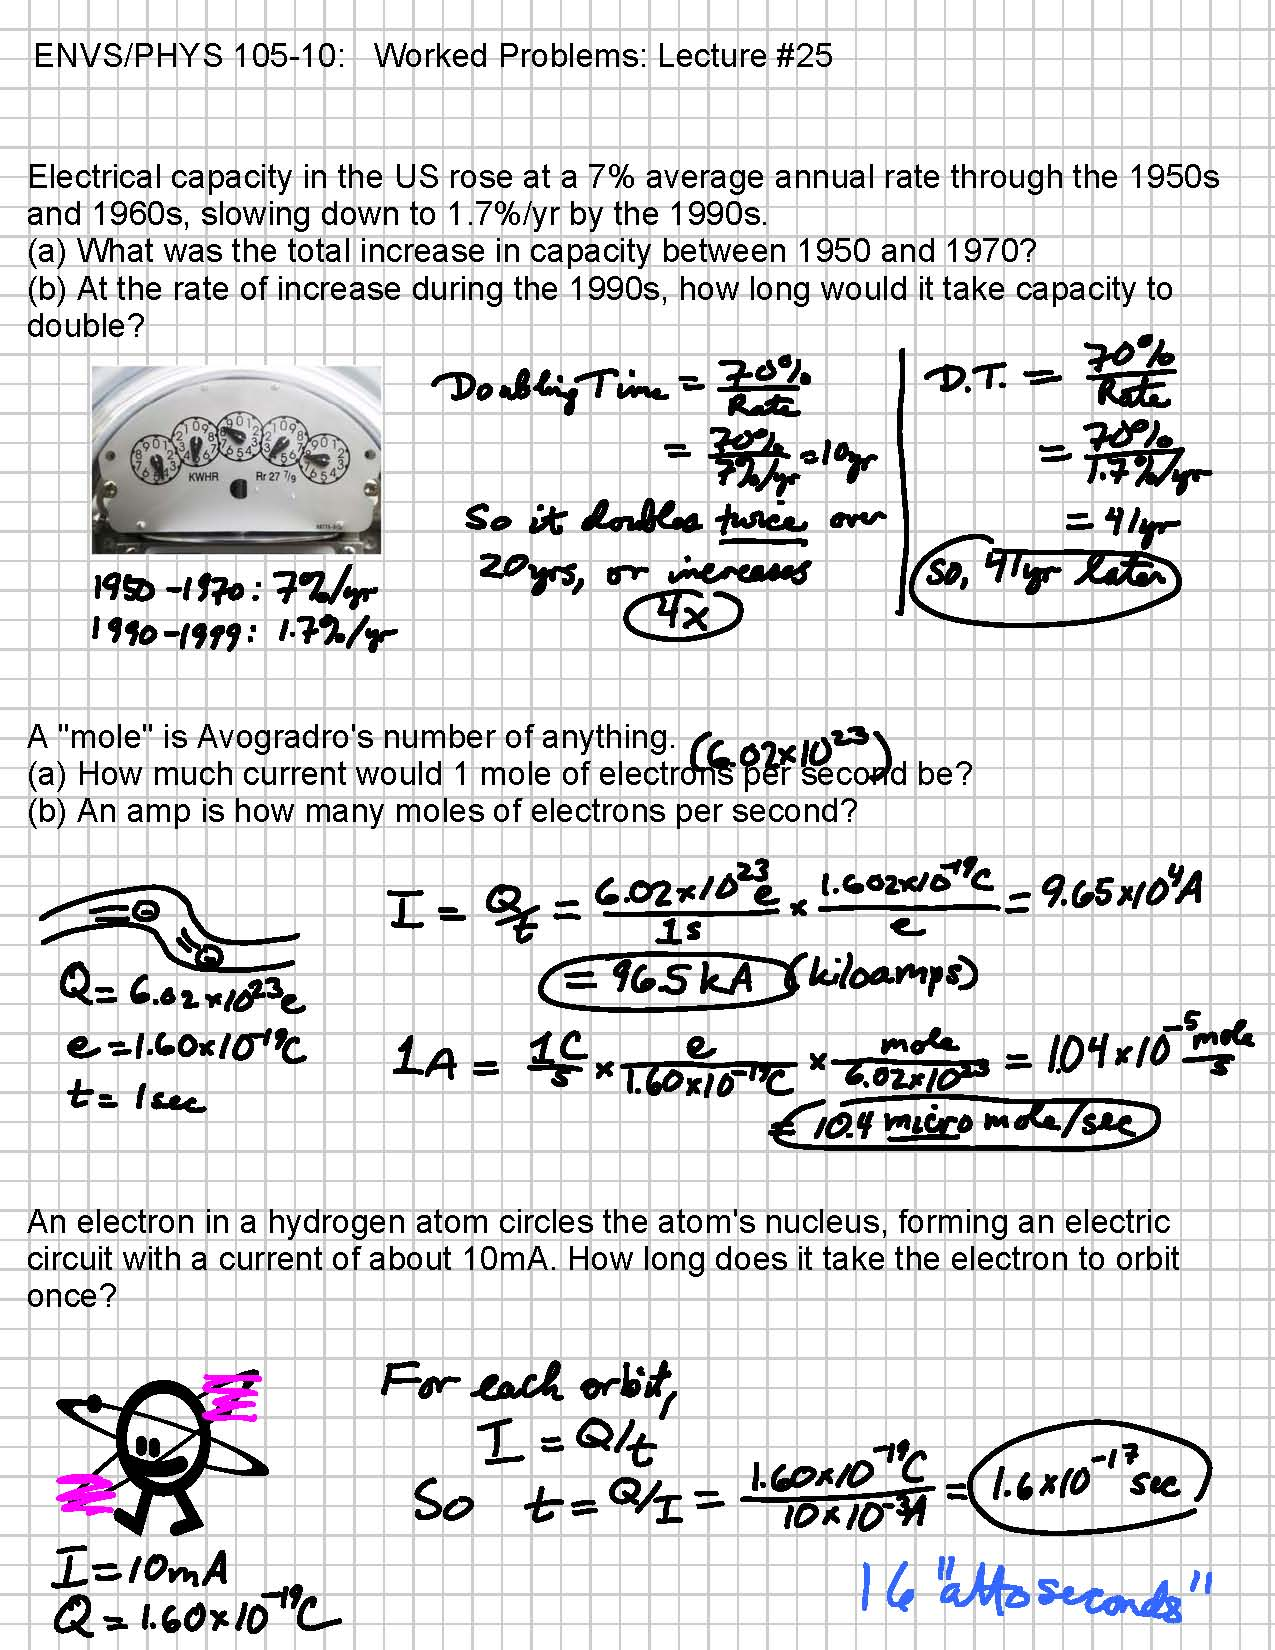 ENVS/PHYS 105-10: Worked Problems: Lecture #25
Electrical capacity in the US rose at a 7% average annual rate through the 1950s
and 1960s, slowing down to 1.7%/yr by the 1990s.
(a) What was the total increase in capacity between 1950 and 1970?
(b) At the rate of increase during the 1990s, how long would it take capacity to
double?
KWHR Rr 27 7/9
1950-1970: 7%/yr
1990-1999: 1.7%/yr
Doubling Time = 70%/Rate
= 70%/7%/yr = 10yr
So it doubles twice over
20yrs, or increases
4x
D.T. = 70%/Rate
= 70%/1.7%/yr
= 41yr
so, 41yr later
A "mole" is Avogradro's number of anything. (6.02x10^23)
(a) How much current would 1 mole of electrons per second be?
(b) An amp is how many moles of electrons per second?
Q = 6.02x10^23 e
e = 1.60x10^-19 C
t = 1 sec
I = Q/t = 6.02x10^23 e/1s x 1.602x10^-19 C/e = 9.65x10^4 A
= 96.5 kA (kiloamps)
1A = 1C/s x e/1.60x10^-19 C x mole/6.02x10^23 = 1.04x10^-5 mole/s
= 10.4 micro mole/sec
An electron in a hydrogen atom circles the atom's nucleus, forming an electric
circuit with a current of about 10mA. How long does it take the electron to orbit
once?
I = 10mA
Q = 1.60x10^-19 C
For each orbit,
I = Q/t
So t = Q/I = 1.60x10^-19 C/10x10^-3 A = 1.6x10^-17 sec
16 "attoseconds"